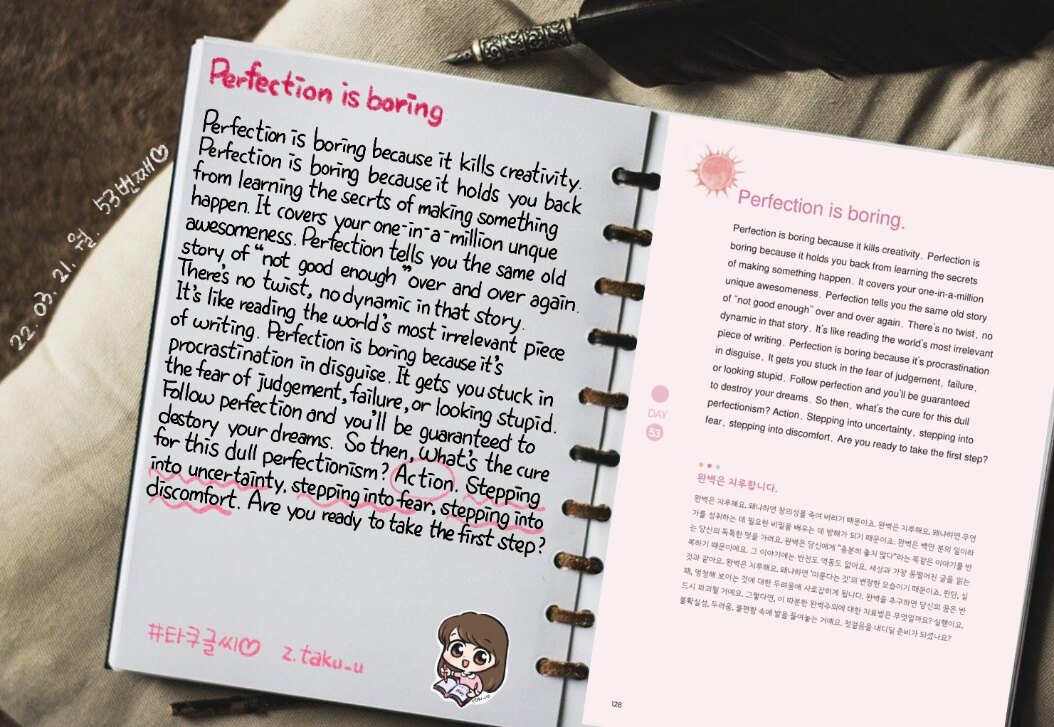 22. 03. 21. 월. 53번째♡
Perfection is boring
Perfection is boring because it kills creativity.
Perfection is boring because it holds you back
from learning the secrts of making something
happen. It covers your one-in-a-million unque
awesomeness. Perfection tells you the same old
story of “not good enough” over and over again.
There's no twist, no dynamic in that story.
It's like reading the world's most irrelevant piece
of writing. Perfection is boring because it's
procrastination in disguise. It gets you stuck in
the fear of judgement, failure, or looking stupid.
Follow perfection and you'll be guaranteed to
destory your dreams. So then, what's the cure
for this dull perfectionism? Action. Stepping
into uncertainty, stepping into fear, stepping into
discomfort. Are you ready to take the first step?
#타쿠글씨♡ z.taku_u
Perfection is boring.
Perfection is boring because it kills creativity. Perfection is
boring because it holds you back from learning the secrets
of making something happen. It covers your one-in-a-million
unique awesomeness. Perfection tells you the same old story
of “not good enough” over and over again. There's no twist, no
dynamic in that story. It's like reading the world's most irrelevant
piece of writing. Perfection is boring because it's procrastination
in disguise. It gets you stuck in the fear of judgement, failure,
or looking stupid. Follow perfection and you'll be guaranteed
to destroy your dreams. So then, what's the cure for this dull
perfectionism? Action. Stepping into uncertainty, stepping into
fear, stepping into discomfort. Are you ready to take the first step?
DAY
53
완벽은 지루합니다.
완벽은 지루해요. 왜냐하면 창의성을 죽여 버리기 때문이죠. 완벽은 지루해요. 왜냐하면 무언
가를 성취하는 데 필요한 비밀을 배우는 데 방해가 되기 때문이죠. 완벽은 백만 분의 일이라
는 당신의 독특한 멋을 가려요. 완벽은 당신에게 “충분히 좋지 않다”라는 똑같은 이야기를 반
복하기 때문이에요. 그 이야기에는 반전도 역동도 없어요. 세상과 가장 동떨어진 글을 읽는
것과 같아요. 완벽은 지루해요. 왜냐하면 '미룬다는 것'의 변장한 모습이기 때문이죠. 판단, 실
패, 멍청해 보이는 것에 대한 두려움에 사로잡히게 됩니다. 완벽을 추구하면 당신의 꿈은 반
드시 파괴될 거예요. 그렇다면, 이 따분한 완벽주의에 대한 치료법은 무엇일까요? 실행이요.
불확실성, 두려움, 불편함 속에 발을 들여놓는 거예요. 첫걸음을 내디딜 준비가 되셨나요?
128